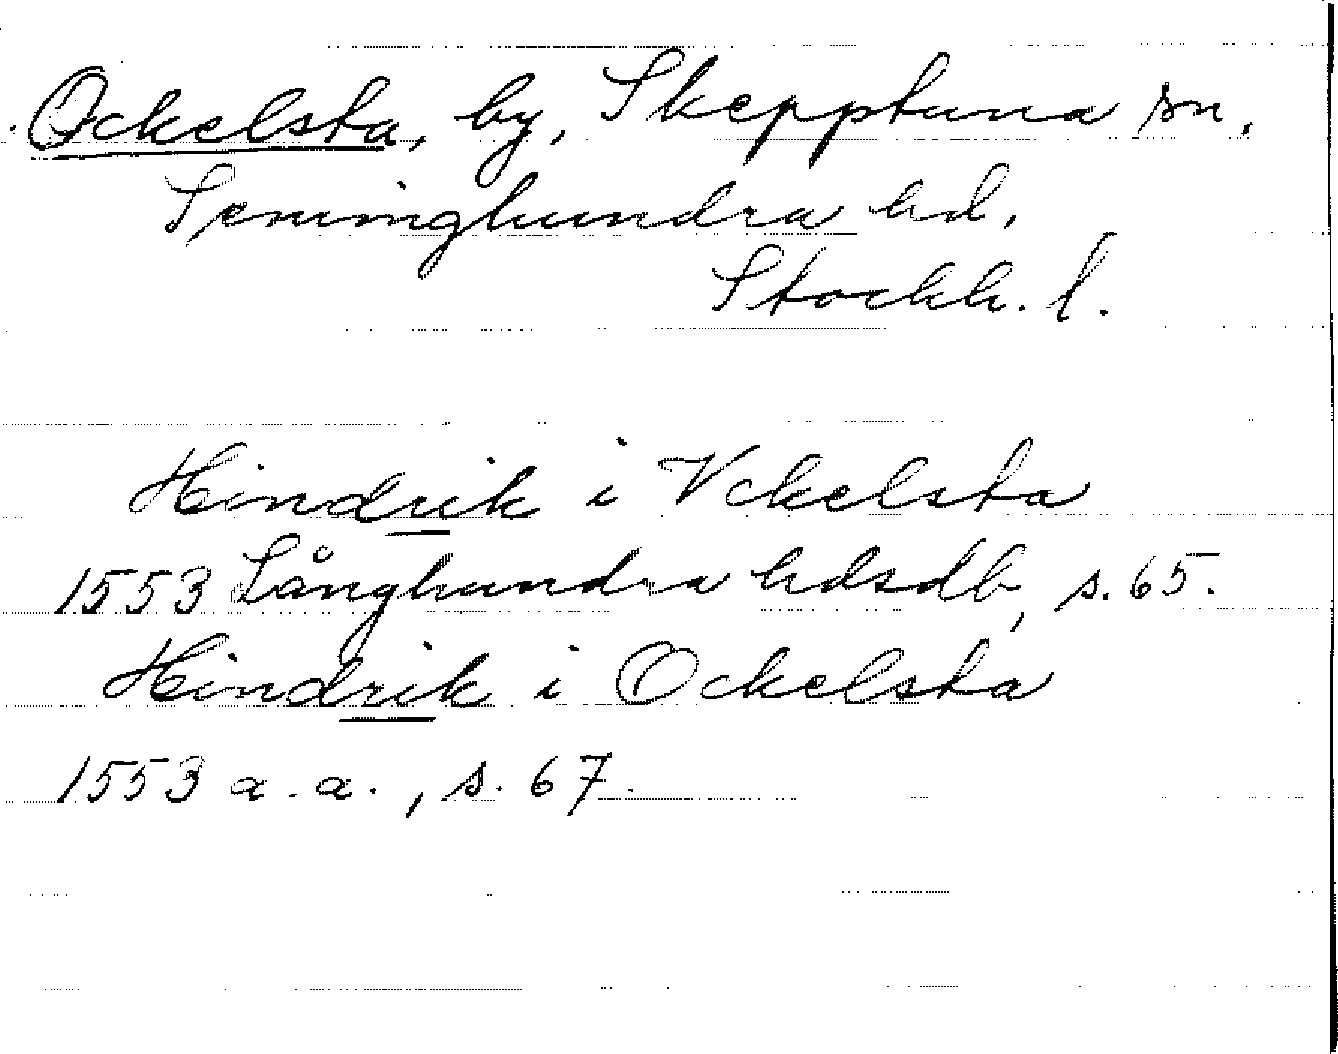 Ockelsta, by, Skepptuna sn,
Seminghundra hd,
Stockh. l.
Hindrik i Vckelsta
1553 Långhundra hdsdb, s. 65.
Hindrik i Ockelsta
1553 a. a., s. 67.